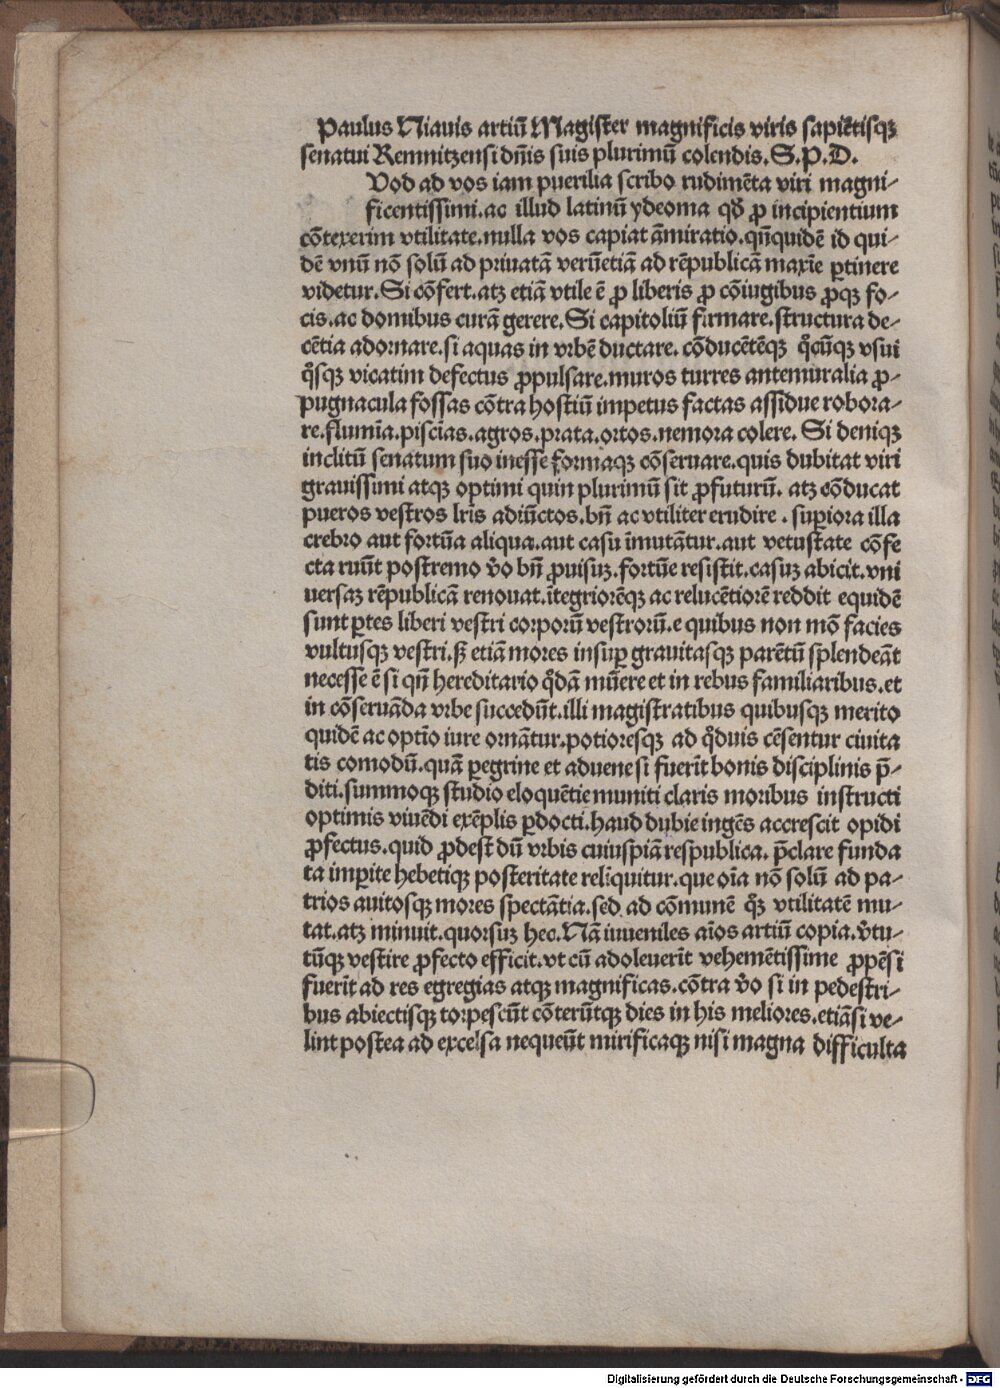 Paulus Niauis artiū Magister magnificis viris sapiētisqꝫ
senatui Kemnitzensi dn̄is suis plurimū colendis. S. P. D.
Vod ad vos iam puerilia scribo rudimēta viri magni⸗
ficentissimi. ac illud latinū ydeoma qd̛ ꝓ incipientium
cōtexerim vtilitate. nulla vos capiat āmiratio. qn̄quidē id qui⸗
dē vnū nō solū ad priuatā verūetiā ad rēpublicā maxīe ꝑtinere
videtur. Si cōfert. atꝫ etiā vtile ē ꝓ liberis ꝓ cōiugibus ꝓqꝫ fo⸗
cis. ac domibus curā gerere. Si capitoliū firmare. structura de⸗
cētia adornare. si aquas in vrbē ductare. cōducētēqꝫ q̊cūqꝫ vsui
q̊sqꝫ vicatim defectus ꝓpulsare. muros turres antemuralia ꝓ⸗
pugnacula fossas cōtra hostiū impetus factas assidue robora⸗
re. flumīa. piscīas. agros. prata. ortos. nemora colere. Si deniqꝫ
inclitū senatum suo inesse formaqꝫ cōseruare. quis dubitat viri
grauissimi atqꝫ optimi quin plurimū sit ꝓfuturū. atꝫ cōducat
pueros vestros lr̄is adiūctos. bn̄ ac vtiliter erudire. suꝑiora illa
crebro aut fortūa aliqua. aut casu īmutātur. aut vetustate cōfe
cta ruūt postremo v̊o bn̄ ꝓuisuꝫ. fortūe resistit. casuꝫ abicit. vni
uersaꝫ rēpublicā renouat. ītegriorēqꝫ ac relucētiorē reddit equidē
sunt ꝑtes liberi vestri corporū vestrorū. e quibus non mō facies
vultusqꝫ vestri. sꝫ etiā mores insuꝑ grauitasqꝫ parētū splendeāt
necesse ē si qn̄ hereditario q̊dā mūere et in rebus familiaribus. et
in cōseruāda vrbe succedūt. illi magistratibus quibusqꝫ merito
quidē ac optīo iure ornātur. potioresqꝫ ad q̊duis cēsentur ciuita
tis comodū. quā ꝑegrine et aduene si fuerīt bonis disciplinis p̄⸗
diti. summoqꝫ studio eloquētie muniti claris moribus instructi
optimis viuēdi exēplis ꝑdocti. haud dubie ingēs accrescit opidi
ꝓfectus. quid ꝓdest dū vrbis cuiuspiā respublica. p̄clare funda
ta imꝑite hebetiqꝫ posteritate relīquitur. que oīa nō solū ad pa⸗
trios auitosqꝫ mores spectātia. sed ad cōmunē q̊ꝫ vtilitatē mu⸗
tat. atꝫ minuit. quorsuꝫ hec. Nā iuueniles aīos artiū copia. v̊tu⸗
tūqꝫ vestire ꝓfecto efficit. vt cū adoleuerīt vehemētissime ꝓpēsi
fuerīt ad res egregias atqꝫ magnificas. cōtra v̊o si in pedestri⸗
bus abiectisqꝫ torpescūt cōterūtqꝫ dies in his meliores. etiāsi ve⸗
lint postea ad excelsa nequeūt mirificaqꝫ nisi magna difficulta
Digitalisierung gefördert durch die Deutsche Forschungsgemeinschaft - DFG